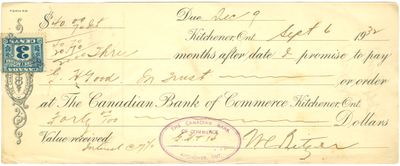 $40.00
Due Dec 9
Kitchener, Ont. Sept 6 1932
Three months after date I promise to pay
E. H. Good In Trust or order
at The Canadian Bank of Commerce Kitchener, Ont.
Forty Dollars
Value received
Interest @ 7%
THE CANADIAN BANK
OF COMMERCE
KITCHENER, ONT.
3